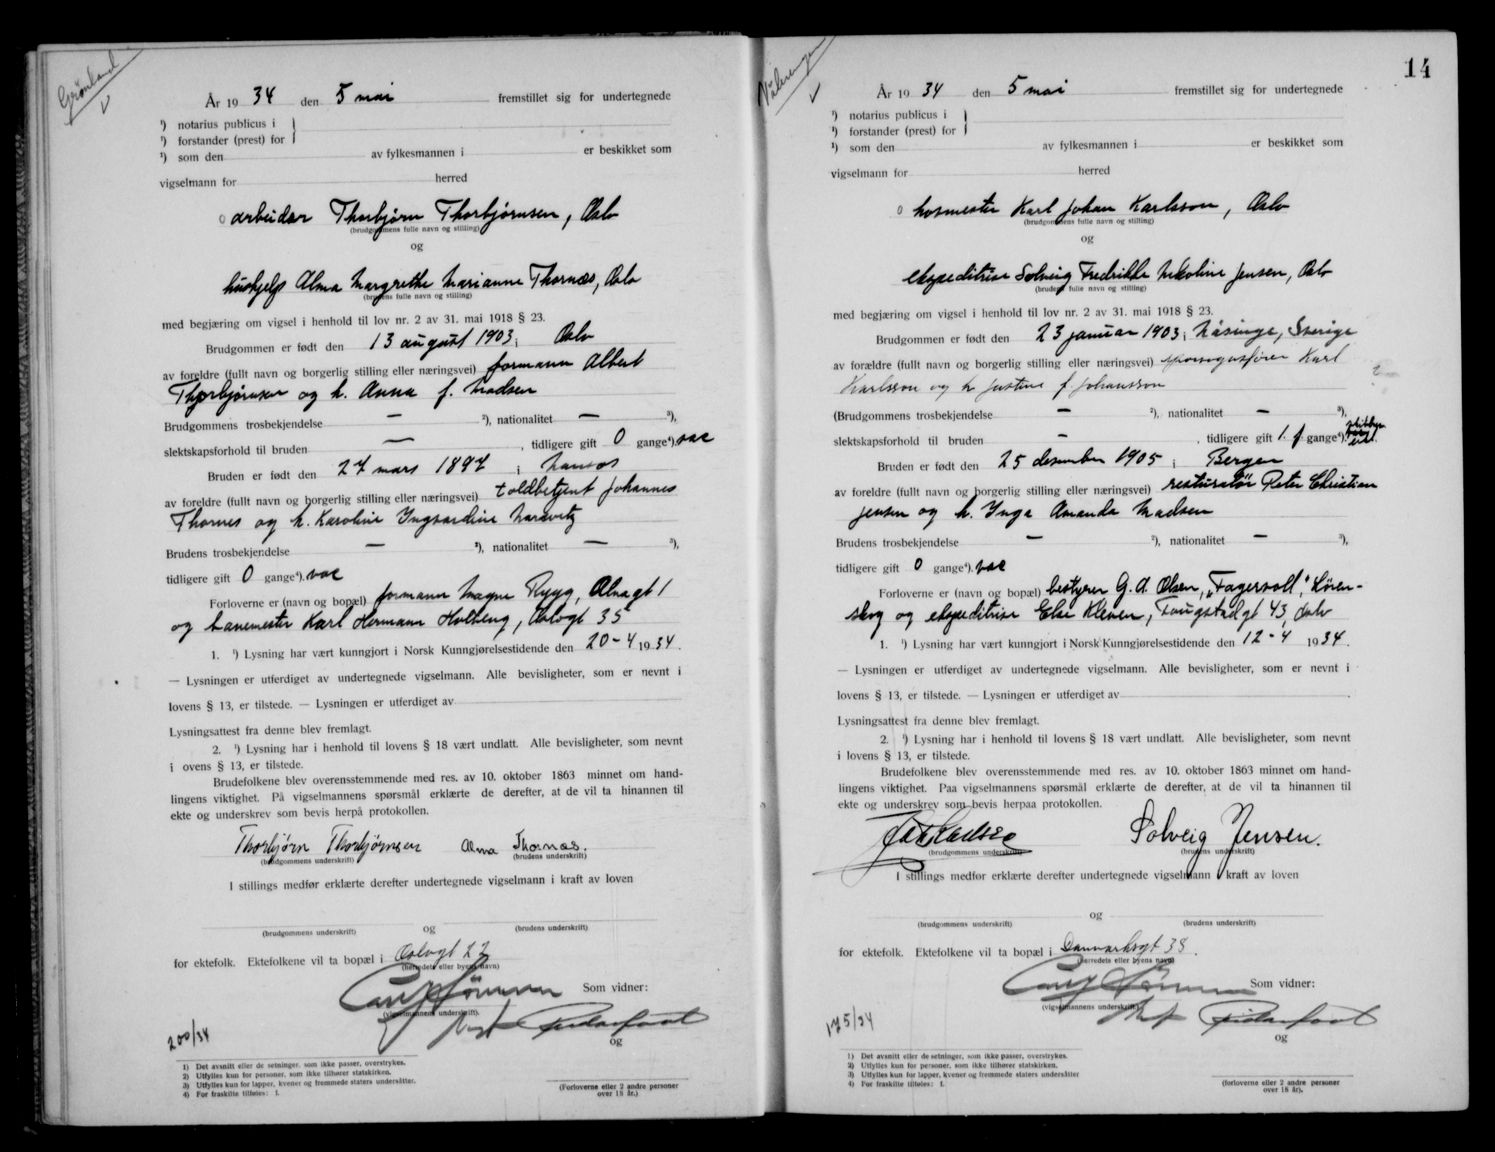 Grønland
År 1934 den 5 mai fremstillet sig for undertegnede
¹) notarius publicus i
¹) forstander (prest) for
¹) som den av fylkesmannen i er beskikket som
vigselmann for herred
arbeider Thorbjørn Thorbjørnsen, Oslo
(brudgommens fulle navn og stilling)
og
hushjelp Alma Margrethe Marianne Thornæs, Oslo
(brudens fulle navn og stilling)
med begjæring om vigsel i henhold til lov nr. 2 av 31. mai 1918 § 23.
Brudgommen er født den 13 august 1903 i Oslo
av forældre (fullt navn og borgerlig stilling eller næringsvei) formann Albert
Thorbjørnsen og h. Anna f. Madsen
Brudgommens trosbekjendelse — ²), nationalitet — ³),
slektskapsforhold til bruden — , tidligere gift 0 gange⁴). vac
Bruden er født den 27 mars 1897 i
av foreldre (fullt navn og borgerlig stilling eller næringsvei) toldbetjent Johannes
Thornes og h. Karoline
Brudens trosbekjendelse — ²), nationalitet — ³),
tidligere gift 0 gange⁴). vac
Forloverne er (navn og bopæl) formann Magne Rygg, Olnagt 1
og banemester Karl Hermann Holberg, Oslogt 35
1. ¹) Lysning har vært kunngjort i Norsk Kunngjørelsestidende den 20-4 1934.
— Lysningen er utferdiget av undertegnede vigselmann. Alle bevisligheter, som er nevnt i
lovens § 13, er tilstede. — Lysningen er utferdiget av
Lysningsattest fra denne blev fremlagt.
2. ¹) Lysning har i henhold til lovens § 18 vært undlatt. Alle bevisligheter, som nevnt
i ovens § 13, er tilstede.
Brudefolkene blev overensstemmende med res. av 10. oktober 1863 minnet om hand-
lingens viktighet. På vigselmannens spørsmål erklærte de derefter, at de vil ta hinannen til
ekte og underskrev som bevis herpå protokollen.
Thorbjørn Thorbjørnsen Alma Thornæs.
(brudgommens underskrift) (brudens underskrift)
I stillings medfør erklærte derefter undertegnede vigselmann i kraft av loven
og
(brudgommens underskrift) (brudens underskrift)
for ektefolk. Ektefolkene vil ta bopæl i Oslogt 22
(herredets eller byens navn)
Som vidner:
(vigselmannens underskrift).
og
200/34
1) Det avsnitt eller de setninger, som ikke passer, overstrykes.
2) Utfylles kun for personer, som ikke tilhører statskirken.
3) Utfylles kun for lapper, kvener og fremmede staters undersåtter.
4) For fraskilte tilføies: f.
(Forloverne eller 2 andre personer
over 18 år.)
14
Vålerengen
År 1934 den 5 mai fremstillet sig for undertegnede
¹) notarius publicus i
¹) forstander (prest) for
¹) som den av fylkesmannen i er beskikket som
vigselmann for herred
hovmester Karl Johan Karlsson, Oslo
(brudgommens fulle navn og stilling)
og
ekspeditrise Solveig Fredrikke Nikoline Jensen, Oslo
(brudens fulle navn og stilling)
med begjæring om vigsel i henhold til lov nr. 2 av 31. mai 1918 § 23.
Brudgommen er født den 23 januar 1903 i Näsinge, Sverige
av forældre (fullt navn og borgerlig stilling eller næringsvei) sporvognsfører Karl
Karlsson og h. Justine f. Johansson
(Brudgommens trosbekjendelse — ²), nationalitet — ³),
slektskapsforhold til bruden — , tidligere gift 1 f gange⁴).
Bruden er født den 25 desember 1905 i Bergen
av foreldre (fullt navn og borgerlig stilling eller næringsvei) restauratør Peter Christian
Jensen og h. Inga Amanda Madsen
Brudens trosbekjendelse — ²), nationalitet — ³),
tidligere gift 0 gange⁴). vac
Forloverne er (navn og bopæl) bestyrer G. A. Olsen, „Fagervoll", Løren-
skog og ekspeditrise Else Kleven, Tougstadgt 43, Oslo
1. ¹) Lysning har vært kunngjort i Norsk Kunngjørelsestidende den 12-4 1934.
— Lysningen er utferdiget av undertegnede vigselmann. Alle bevisligheter, som er nevnt i
lovens § 13, er tilstede. — Lysningen er utferdiget av
Lysningsattest fra denne blev fremlagt.
2. ¹) Lysning har i henhold til lovens § 18 vært undlatt. Alle bevisligheter, som nevnt
i lovens § 13, er tilstede.
Brudefolkene blev overensstemmende med res. av 10. oktober 1863 minnet om hand-
lingens viktighet. Paa vigselmannens spørsmål erklærte de derefter, at de vil ta hinannen til
ekte og underskrev som bevis herpaa protokollen.
Solveig Jensen.
(brudgommens underskrift) (brudens underskrift)
I stillings medfør erklærte derefter undertegnede vigselmann i kraft av loven
og
(brudgommens underskrift) (brudens underskrift)
for ektefolk. Ektefolkene vil ta bopæl i Danmarksgt 38.
(herredets eller byens navn)
Som vidner:
(vigselmannens underskrift).
og
175/34
1) Det avsnitt eller de setninger, som ikke passer, overstrykes.
2) Utfylles kun for personer, som ikke tilhører statskirken.
3) Utfylles kun for lapper, kvener og fremmede staters undersåtter
4) For fraskilte tilføies: f.
(forloverne eller 2 andre personer
over 18 år).